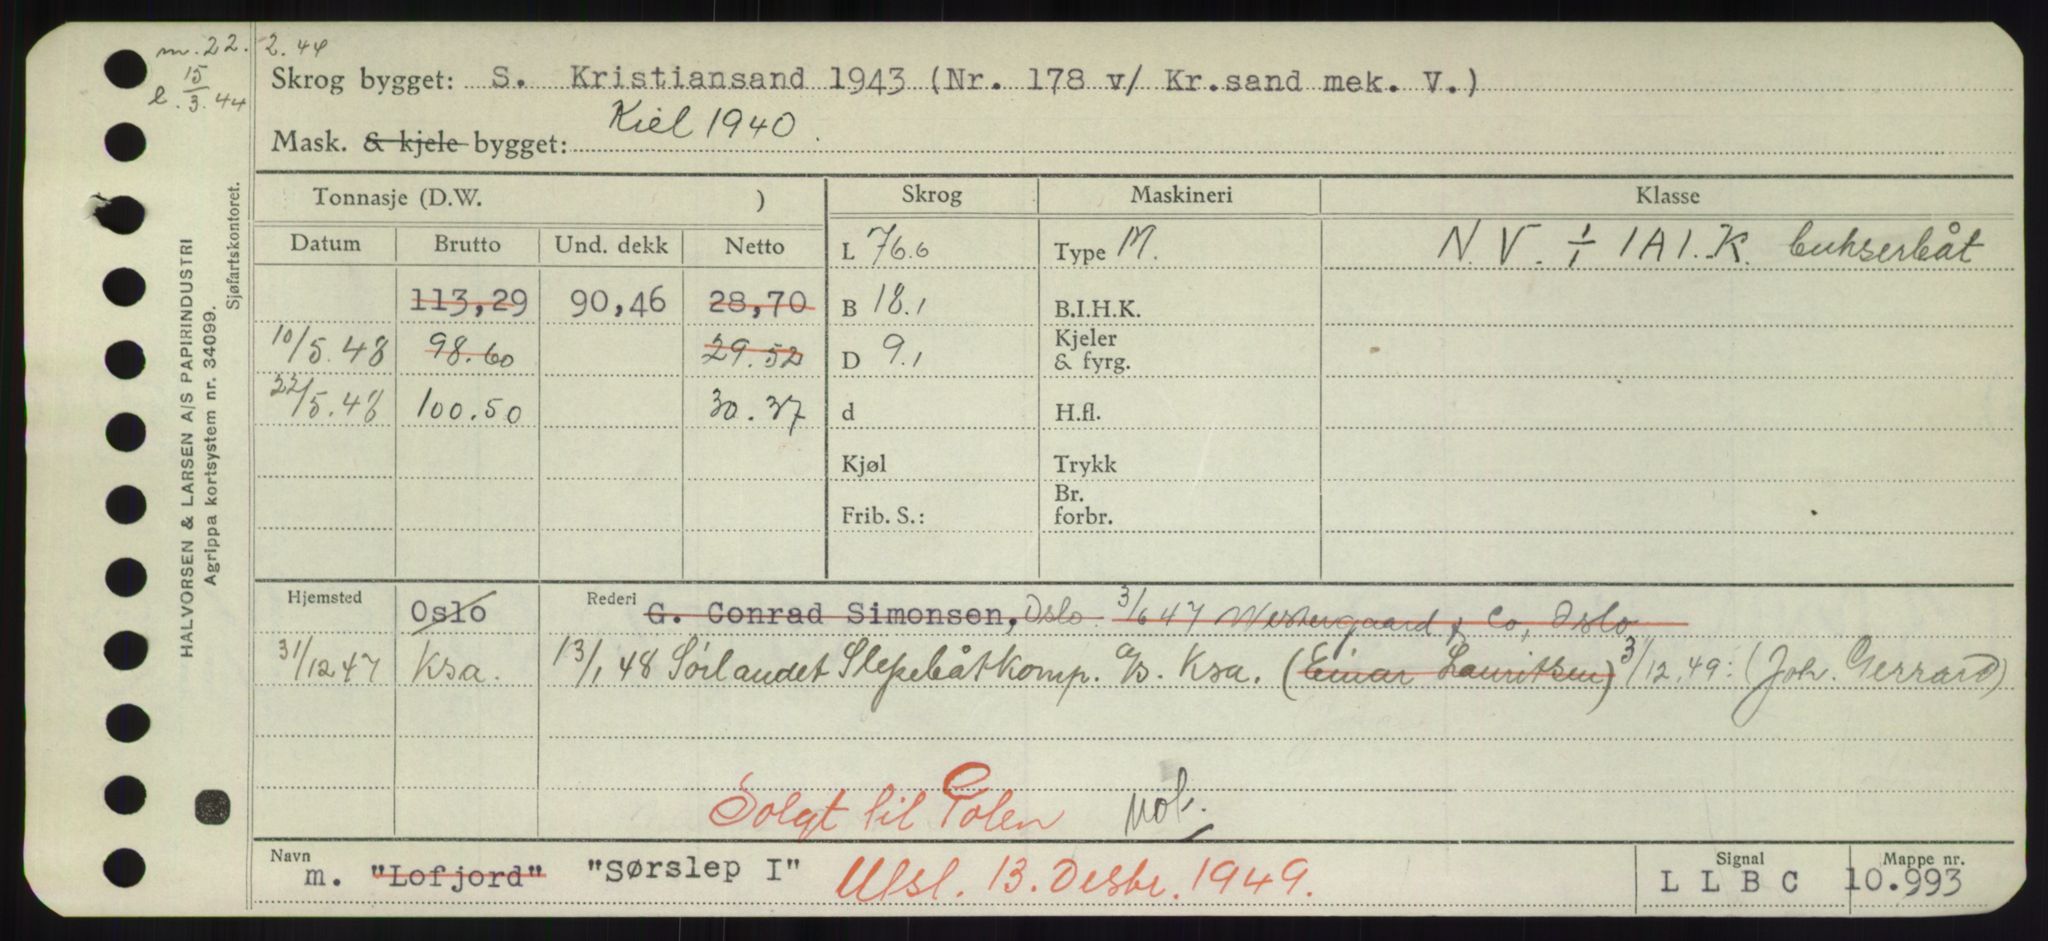 m. 22. 2. 44
l. 15/3. 44
Skrog bygget: S. Kristiansand 1943 (Nr. 178 v/ Kr.sand mek. V.)
Mask. & kjele bygget: Kiel 1940.
Tonnasje (D.W. ) Skrog Maskineri Klasse
Datum Brutto Und. dekk Netto L 76.6 Type M. N.V. 1/1 1A1.K. bukserbåt
113,29 90,46 28,70 B 18.1 B.I.H.K.
10/5.48 98.60 29.52 D 9.1 Kjeler & fyrg.
22/5.48 100.50 30.37 d H.fl.
Kjøl Trykk
Frib. S.: Br. forbr.
Hjemsted Oslo Rederi G. Conrad Simonsen, Oslo. 3/6 47 Westergaard & Co, Oslo
31/12 47 Ksa. 13/1 48 Sørlandet Slepebåtkomp. a/s. Ksa. (Einar Lauritsen) 3/12.49: (Joh. Gerrard)
Solgt til Polen
Navn m. "Lofjord" "Sørslep I" Utsl. 13. Desbr. 1949. Signal L L B C Mappe nr. 10.993
HALVORSEN & LARSEN A/S PAPIRINDUSTRI
Agrippa kortsystem nr. 34099.
Sjøfartskontoret.